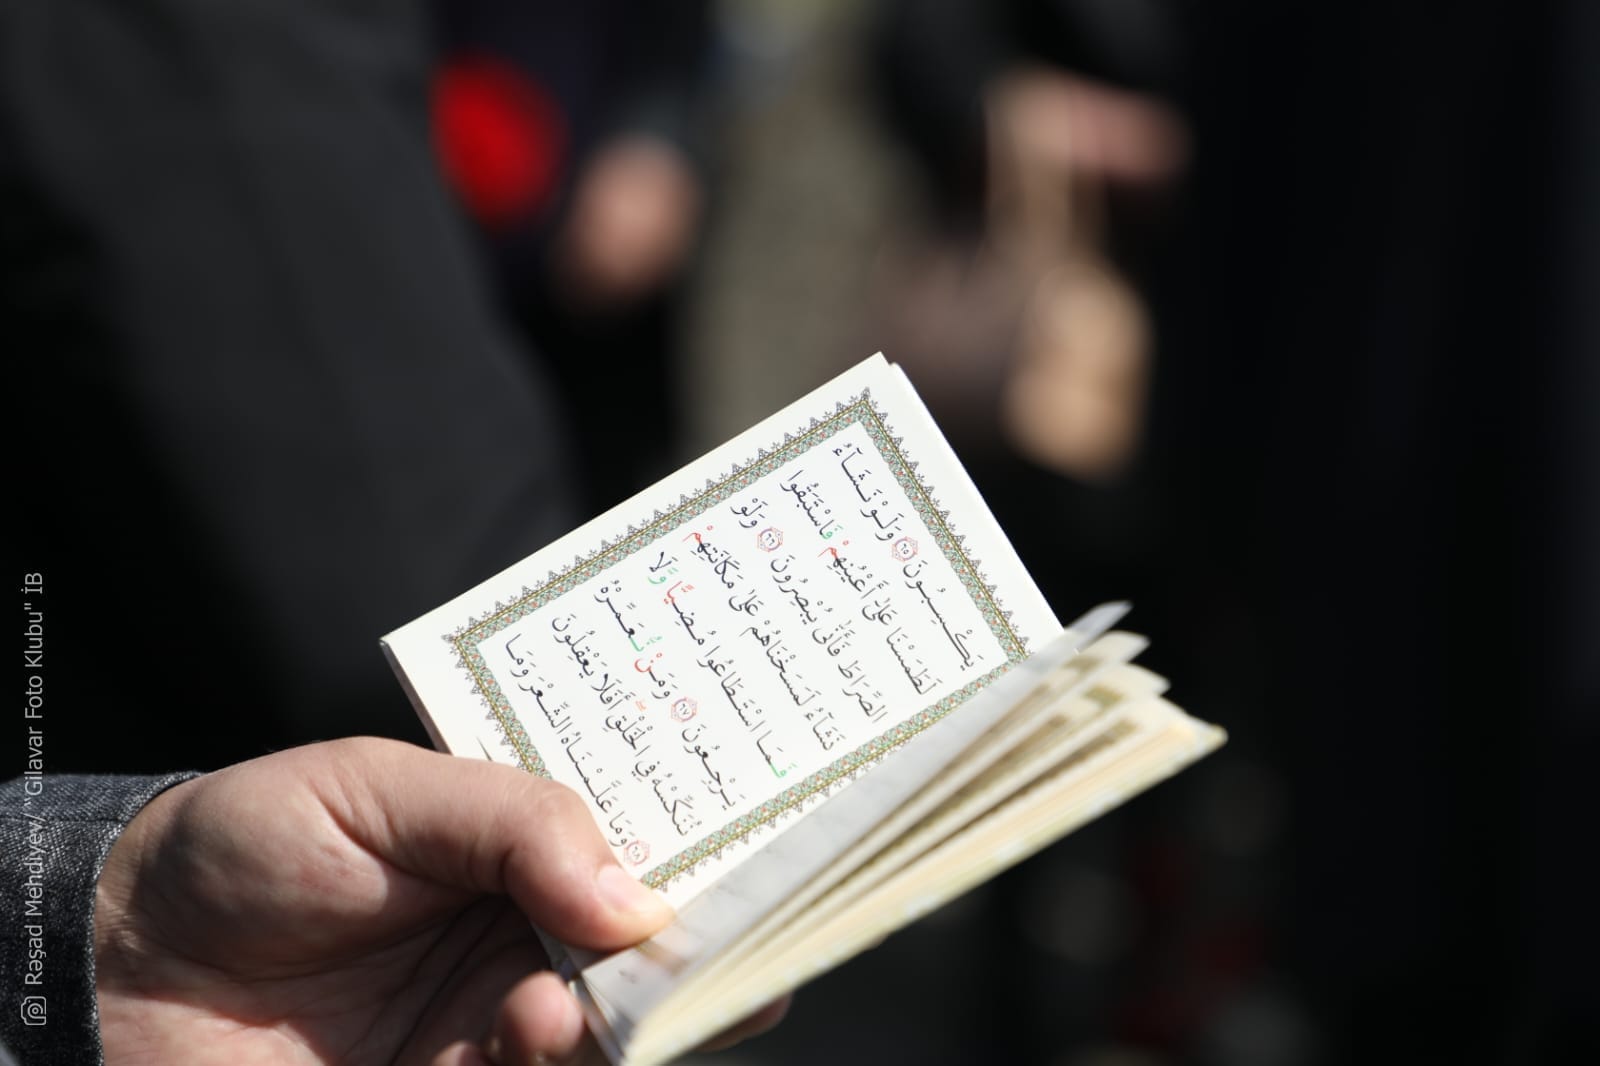 يَكْسِبُونَ ٦٥ وَلَوْ نَشَآءُ
لَطَمَسْنَا عَلَىٰٓ أَعْيُنِهِمْ فَاسْتَبَقُوا
الصِّرَاطَ فَأَنَّىٰ يُبْصِرُونَ ٦٦ وَلَوْ
نَشَآءُ لَمَسَخْنَاهُمْ عَلَىٰ مَكَانَتِهِمْ
فَمَا اسْتَطَاعُوا مُضِيًّا وَّلَا
يَرْجِعُونَ ٦٧ وَمَنْ نُّعَمِّرْهُ
نُنَكِّسْهُ فِي الْخَلْقِ أَفَلَا يَعْقِلُونَ
٦٨ وَمَا عَلَّمْنَاهُ الشِّعْرَ وَمَا
Rəşad Mehdiyev/ "Gilavar Foto Klubu" İB